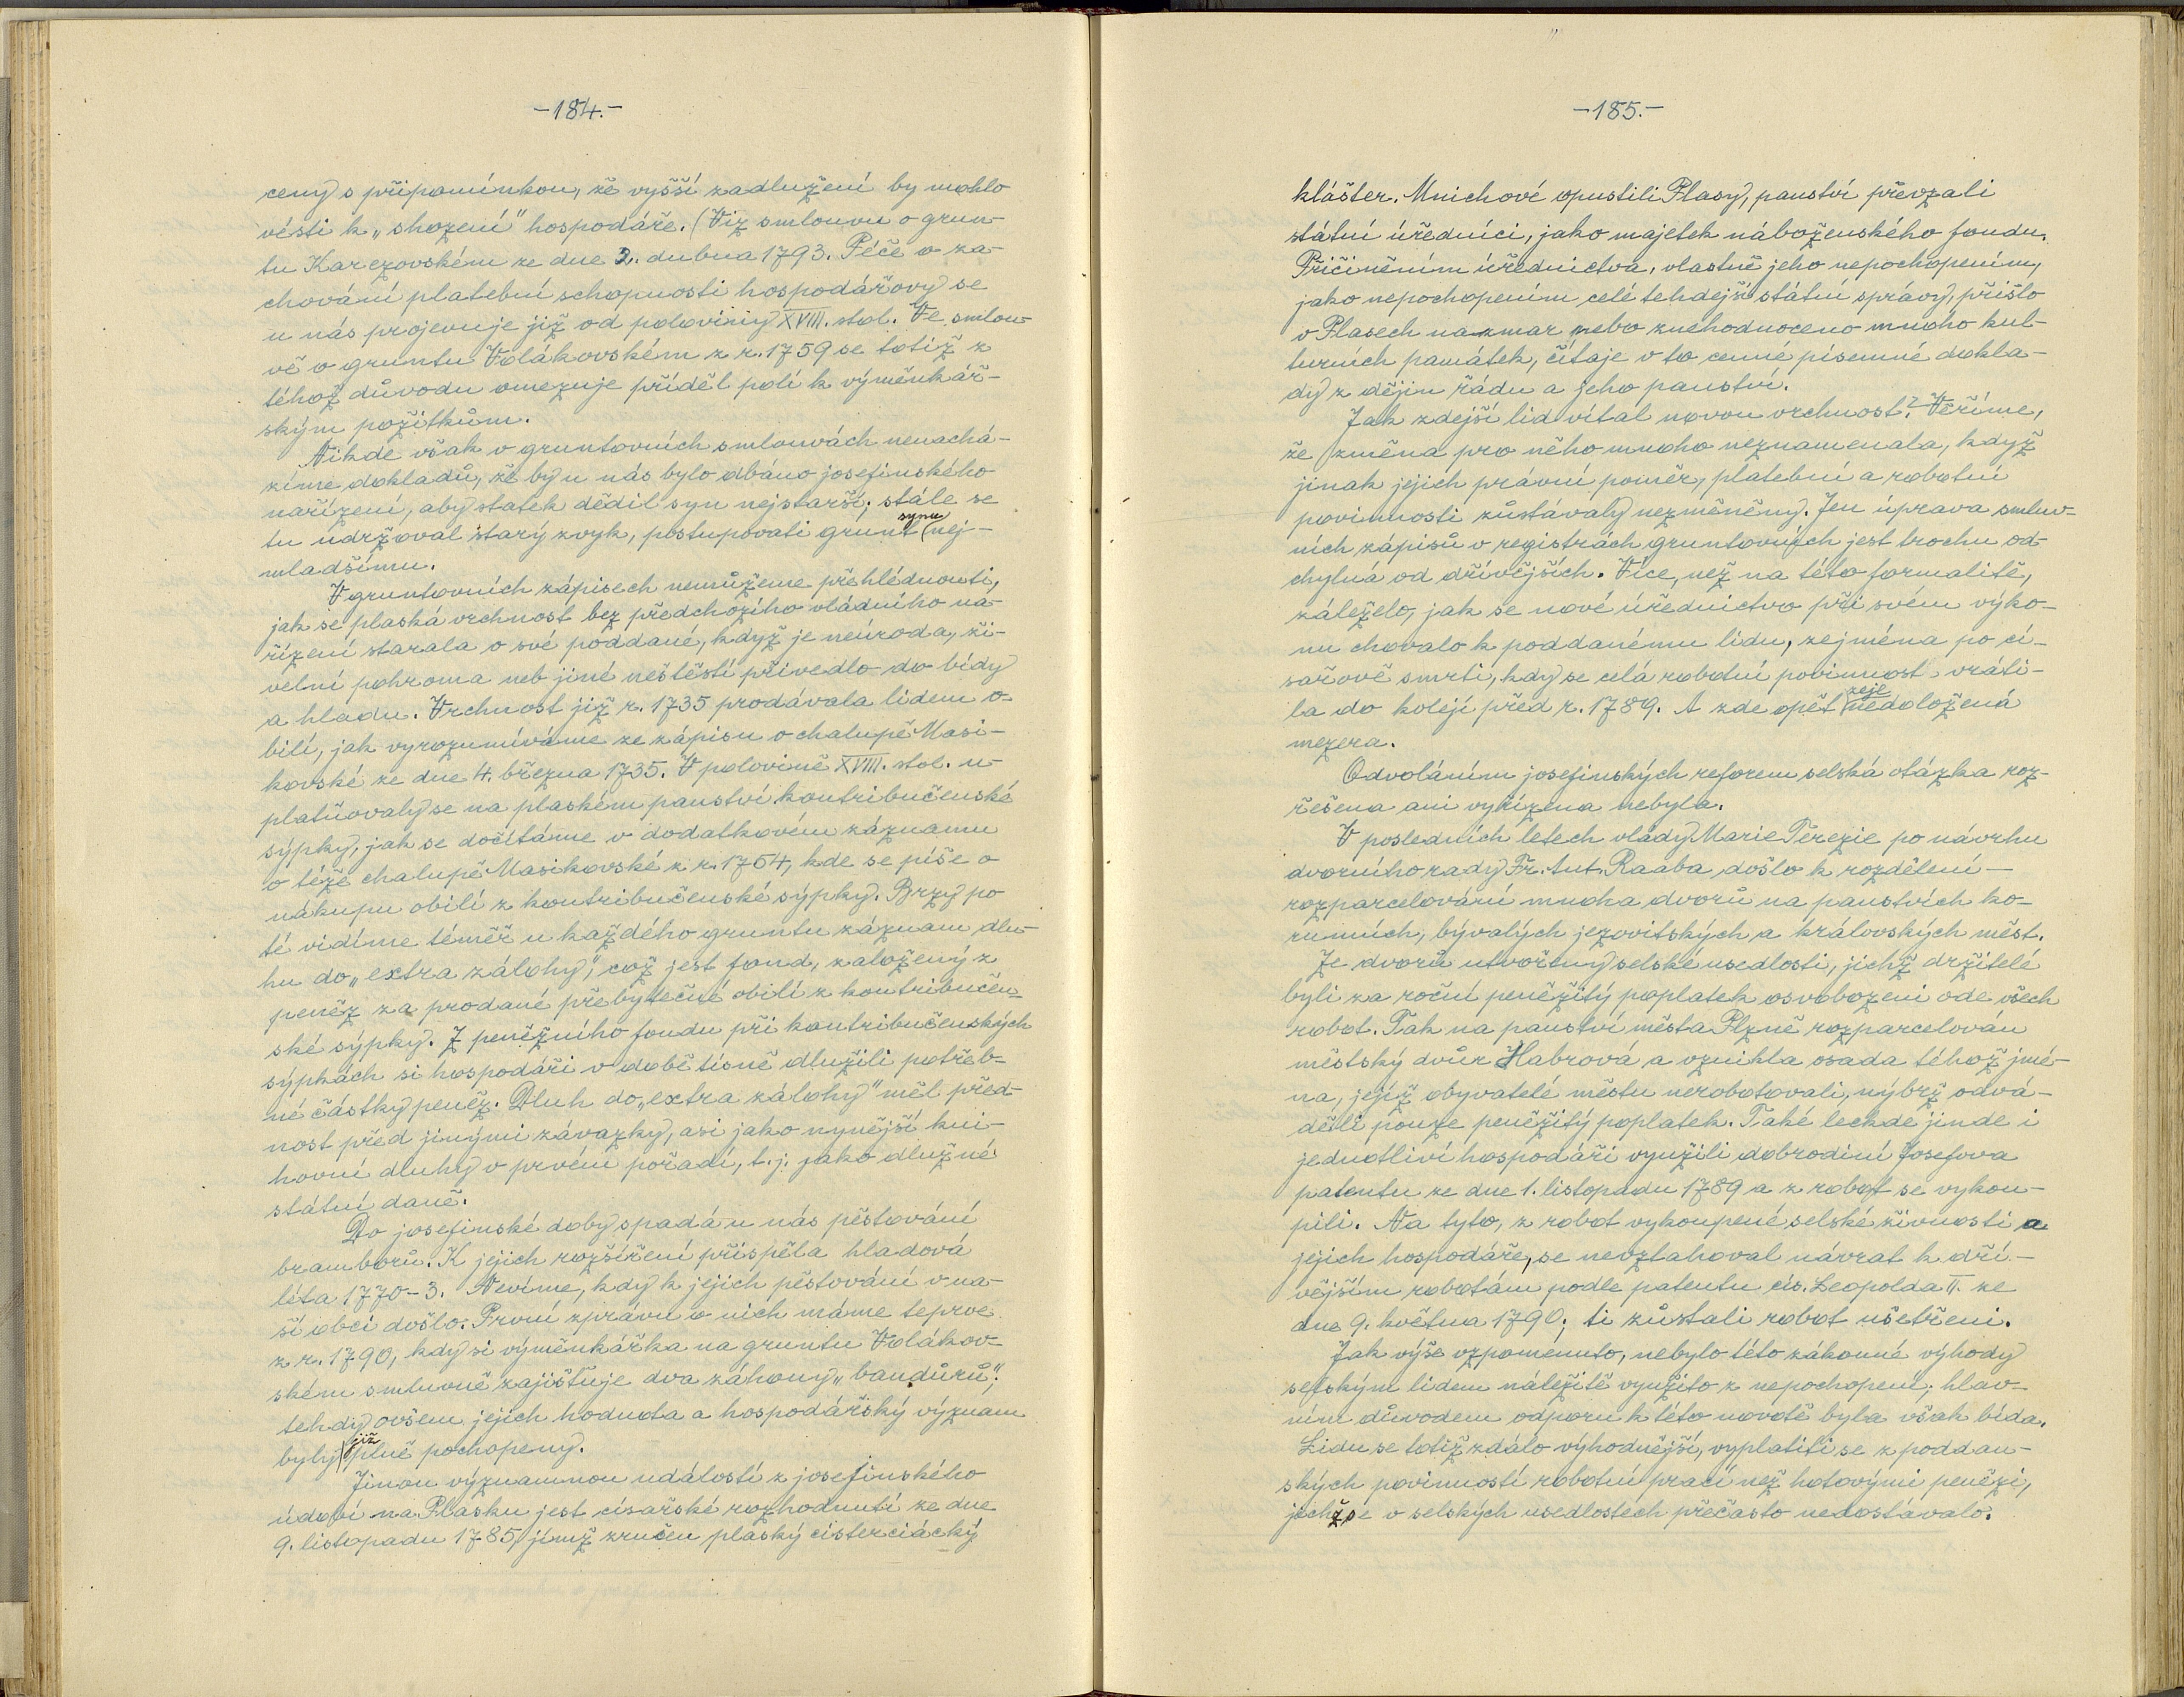 -184.-
ceny s připomínkou, že vyšší zadlužení by mohlo
vésti k „shození" hospodáře. (Viz smlouvu o grun-
tu Karezovském ze dne 2. dubna 1793. Péče o za-
chování platební schopnosti hospodářovy se
u nás projevuje již od poloviny XVIII. stol. Ve smlou-
vě o gruntu Volákovském z r. 1759 se totiž z
téhož důvodu omezuje příděl polí k výměnkář-
ským požitkům.
Nikde však v gruntovních smlouvách nenachá-
zíme dokladů, že by u nás bylo dbáno josefinského
nařízení, aby statek dědil syn nejstarší; stále se
tu udržoval starý zvyk, postupovati grunt synu nej-
mladšímu.
V gruntovních zápisech nemůžeme přehlédnouti,
jak se plaská vrchnost bez předchozího vládního na-
řízení starala o své poddané, když je neúroda, ži-
velní pohroma neb jiné neštěstí přivedlo do bídy
a hladu. Vrchnost již r. 1735 prodávala lidem o-
bilí, jak vyrozumíváme ze zápisu o chalupě Masi-
kovské ze dne 4. března 1735. V polovině XVIII. stol. u-
platňovaly se na plaském panství kontribučenské
sýpky, jak se dočítáme v dodatkovém záznamu
o téže chalupě Masikovské z r. 1754, kde se píše o
nákupu obilí z kontribučenské sýpky. Brzy po
té vidíme téměř u každého gruntu záznam dlu-
hu do „extra zálohy", což jest fond, založený z
peněz za prodané přebytečné obilí z kontribučen-
ské sýpky. Z peněžního fondu při kontribučenských
sýpkách si hospodáři v době tísně dlužili potřeb-
né částky peněz. Dluh do „extra zálohy" měl před-
nost před jinými závazky, asi jako nynější kni-
hovní dluhy v prvém pořadí, t. j. jako dlužné
státní daně.
Do josefinské doby spadá u nás pěstování
bramborů. K jejich rozšíření přispěla hladová
léta 1770-3. Nevíme, kdy k jejich pěstování v na-
ší obci došlo. První zprávu o nich máme teprve
z r. 1790, kdy si výměnkářka na gruntu Volákov-
ském smluvně zajišťuje dva záhony „bandůrů";
tehdy ovšem jejich hodnota a hospodářský význam
byly již plně pochopeny.
Jinou významnou událostí z josefinského
údobí na Plasku jest císařské rozhodnutí ze dne
9. listopadu 1785, jímž zrušen plaský cisterciácký
-185.-
klášter. Mnichové opustili Plasy, panství převzali
státní úředníci, jako majetek náboženského fondu.
Přičiněním úřednictva, vlastně jeho nepochopením,
jako nepochopením celé tehdejší státní správy, přišlo
v Plasech nazmar nebo znehodnoceno mnoho kul-
turních památek, čítaje v to cenné písemné dokla-
dy z dějin řádu a jeho panství.
Jak zdejší lid vítal novou vrchnost? Věříme,
že změna pro něho mnoho neznamenala, když
jinak jejich právní poměr, platební a robotní
povinnosti zůstávaly nezměněny. Jen úprava smluv-
ních zápisů v registrách gruntovních jest trochu od-
chylná od dřívějších. Více, než na této formalitě,
záleželo, jak se nové úřednictvo při svém výko-
nu chovalo k poddanému lidu, zejména po cí-
sařově smrti, kdy se celá robotní povinnost vráti-
la do kolejí před r. 1789. A zde opět zeje nedoložená
mezera.
Odvoláním josefinských reforem selská otázka roz-
řešena ani vyřízena nebyla.
V posledních letech vlády Marie Terezie po návrhu
dvorního rady Fr. Ant. Raaba došlo k rozdělení —
rozparcelování mnoha dvorů na panstvích ko-
runních, bývalých jezovitských a královských měst.
Ze dvorů utvořeny selské usedlosti, jichž držitelé
byli za roční peněžitý poplatek osvobozeni ode všech
robot. Tak na panství města Plzně rozparcelován
městský dvůr Habrová a vznikla osada téhož jmé-
na, jejíž obyvatelé městu nerobotovali, nýbrž odvá-
děli pouze peněžitý poplatek. Také leckde jinde i
jednotliví hospodáři využili dobrodiní Josefova
patentu ze dne 1. listopadu 1789 a z robot se vykou-
pili. Na tyto, z robot vykoupené selské živnosti a
jejich hospodáře, se nevztahoval návrat k dří-
vějším robotám podle patentu cís. Leopolda II. ze
dne 9. května 1790; ti zůstali robot ušetřeni.
Jak výše vzpomenuto, nebylo této zákonné výhody
selským lidem náležitě využito z nepochopení; hlav-
ním důvodem odporu k této novotě byla však bída.
Lidu se totiž zdálo výhodnější, vyplatiti se z poddan-
ských povinností robotní prací než hotovými penězi,
jichž se v selských usedlostech přečasto nedostávalo.